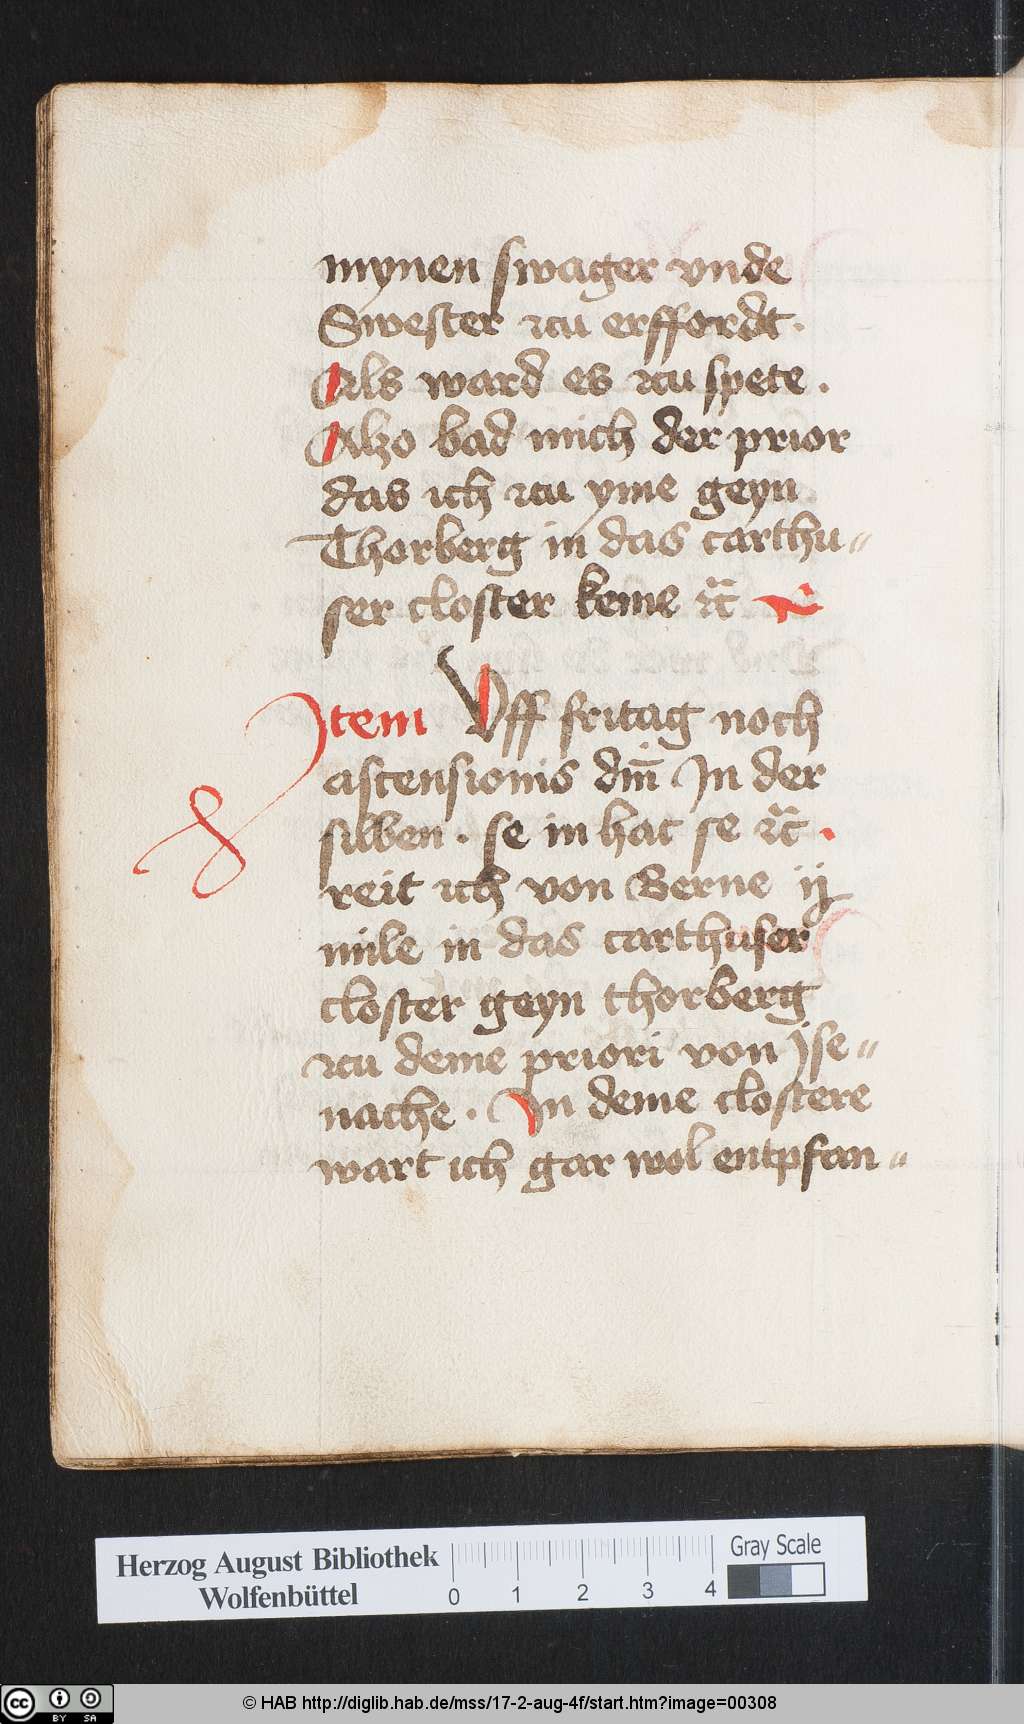 mynen swager vnde
Swester zcu erffordt.
Als ward es zcu spete.
Alzo bad mich der prior
das ich zcu yme geyn
Thorberg in das carthu〃
ser closter keme ꝛc̃
Jtem Vff fritag noch
astensionis dm̄ Jn der
silben. se in hac se ꝛc̃.
reit ich von Berne ij
mile in das carthuser
closter geyn thorberg
zcu deme priori von Jse〃
nache. Jn deme clostere
wart ich gar wol entpfan〃
Herzog August Bibliothek
Wolfenbüttel
0 1 2 3 4
Gray Scale
cc BY SA
© HAB http://diglib.hab.de/mss/17-2-aug-4f/start.htm?image=00308